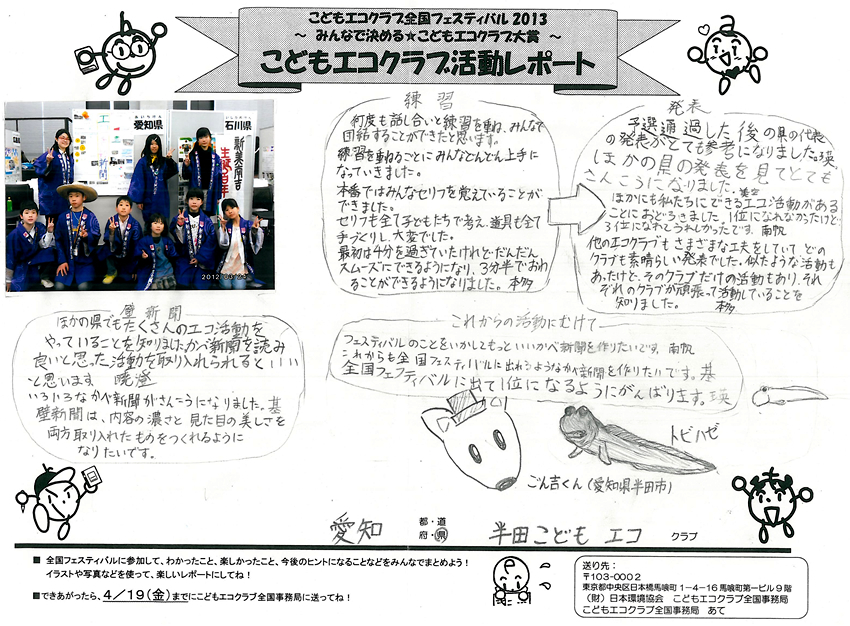 こどもエコクラブ全国フェスティバル 2013
～ みんなで決める★こどもエコクラブ大賞 ～
こどもエコクラブ活動レポート
愛知県
石川県
新美南吉
生誕百年
練習
何度も話し合いと練習を重ね、みんなで
団結することができたと思います。
練習を重ねるごとにみんなどんどん上手に
なっていきました。
本番ではみんなセリフを覚えていることが
できました。
セリフも全て子どもたちで考え、道具も全て
手づくりし、大変でした。
最初は4分を過ぎていたけれど、だんだん
スムーズにできるようになり、3分半でおわ
ることができるようになりました。本多
発表
予選通過した後の県の代表
の発表がとても参考になりました。瑛
ほかの県の発表を見てとても
さんこうになりました。
ほかにも私たちにできるエコ活動がある
ことにおどろきました。1位になれなかったけど
3位になれてうれしかったです。南帆
他のエコクラブもさまざまな工夫をしていて、どの
クラブも素晴らしい発表でした。似たような活動も
あったけど、そのクラブだけの活動もあり、それ
ぞれのクラブが頑張って活動していることを
知りました。 本多
壁新聞
ほかの県でもたくさんのエコ活動を
やっていることを知りました。かべ新聞を読み
良いと思った活動を取り入れられるといい
と思います 暁澄
いろいろなかべ新聞がさんこうになりました。基
壁新聞は、内容の濃さと見た目の美しさを
両方取り入れたものをつくれるように
なりたいです。
これからの活動にむけて
フェスティバルのことをいかしてもっといいかべ新聞を作りたいです。南帆
これからも全国フェスティバルに出れるようなかべ新聞を作りたいです。基
全国フェスティバルに出て1位になるようにがんばります。瑛
トビハゼ
ごん吉くん(愛知県半田市)
愛知 都・道
府・県 半田こども エコ クラブ
■ 全国フェスティバルに参加して、わかったこと、楽しかったこと、今後のヒントになることなどをみんなでまとめよう！
イラストや写真などを使って、楽しいレポートにしてね！
■できあがったら、4／19(金)までにこどもエコクラブ全国事務局に送ってね！
送り先：
〒103-0002
東京都中央区日本橋馬喰町1－4－16 馬喰町第一ビル9階
(財)日本環境協会 こどもエコクラブ全国事務局
こどもエコクラブ全国事務局 あて